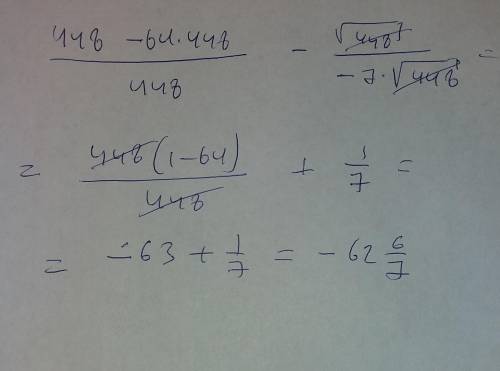 (448 - 64·448)/448 - √448/(-7·√448) =
= 448(1-64)/448 + 1/7 =
= -63 + 1/7 = -62 6/7